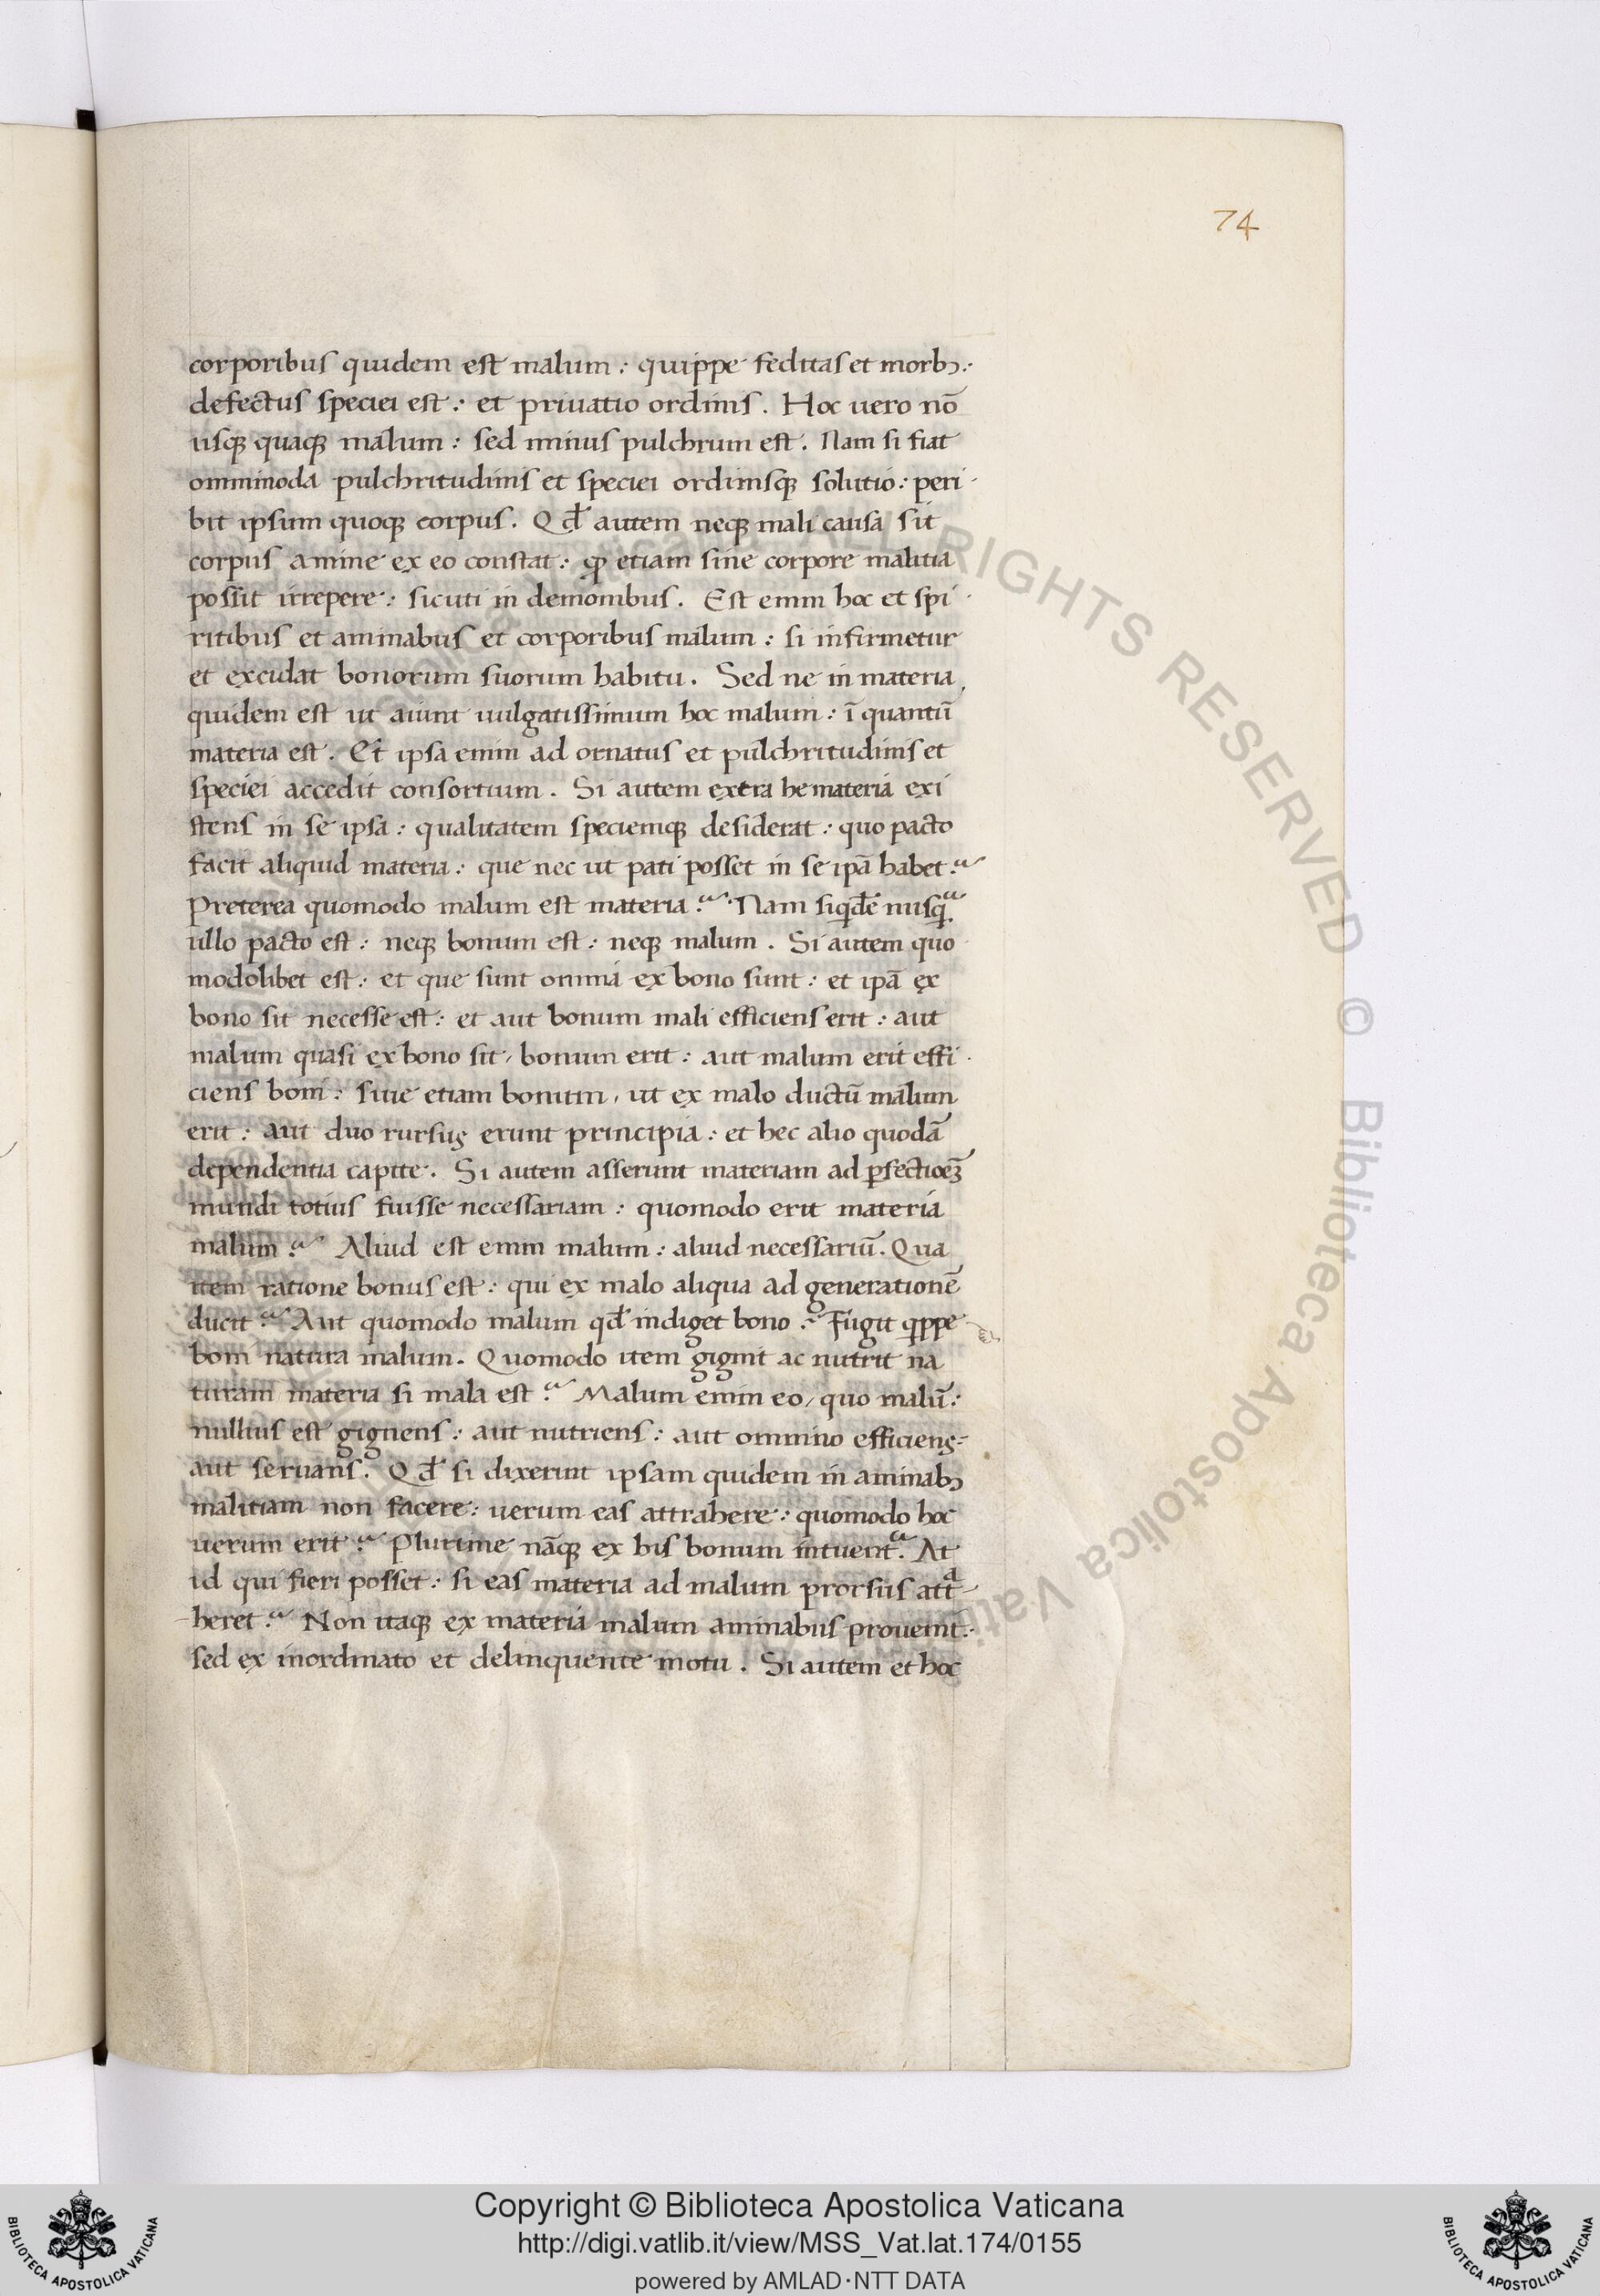 74
corporibus quidem est malum : quippe feditas et morbꝫ :
defectus speciei est : et priuatio ordinis . Hoc uero nō
usqꝫ quaqꝫ malum : sed minus pulchrum est . Nam si fiat
omnimoda pulchritudinis et speciei ordinisqꝫ solutio : peri ·
bit ipsum quoqꝫ corpus . Qđ autem neqꝫ mali causa sit
corpus anime ex eo constat : ꝙ etiam sine corpore malitia
possit irrepere : sicuti in demonibus . Est enim hoc et spi ·
ritibus et animabus et corporibus malum : si infirmetur
et excidat bonorum suorum habitu . Sed ne in materia
quidem est ut aiunt uulgatissimum hoc malum : ī quantū
materia est . Et ipsa enim ad ornatus et pulchritudinis et
speciei accedit consortium . Si autem extra he materia exi
stens in se ipsa : qualitatem speciemqꝫ desiderat : quo pacto
facit aliquid materia : que nec ut pati posset in se ipā habet ?
Preterea quomodo malum est materia ? Nam siqđē nusqᵃ
ullo pacto est : neqꝫ bonum est : neqꝫ malum . Si autem quo
modolibet est : et que sunt omnia ex bono sunt : et ipā ex
bono sit necesse est : et aut bonum mali efficiens erit : aut
malum quasi ex bono sit / bonum erit : aut malum erit effi ·
ciens boni : siue etiam bonum / ut ex malo ductū malum
erit : aut duo rursus erunt principia : et hec alio quodā
dependentia capite . Si autem asserunt materiam ad ꝑfectioēꝫ
mundi totius fuisse necessariam : quomodo erit materia
malum ? Aliud est enim malum : aliud necessariū . Qua
item ratione bonus est : qui ex malo aliqua ad generationē
ducit ? Aut quomodo malum qđ indiget bono ? Fugit q̇ppe
boni natura malum . Quomodo item gignit ac nutrit na
turam materia si mala est ? Malum enim eo / quo malū :
nullius est gignens : aut nutriens : aut omnino efficiens :
aut seruans . Qđ si dixerint ipsam quidem in animabꝫ
malitiam non facere : uerum eas attrahere : quomodo hoc
uerum erit ? Plurime nāqꝫ ex his bonum intuent᷑ ? At
id qui fieri posset : si eas materia ad malum prorsus attᵃ -
heret ? Non itaqꝫ ex materia malum animabus prouenit :
sed ex inordinato et delinquente motu . Si autem et hoc
ALL RIGHTS RESERVED © Biblioteca Apostolica Vaticana
Copyright © Biblioteca Apostolica Vaticana
http://digi.vatlib.it/view/MSS_Vat.lat.174/0155
powered by AMLAD·NTT DATA
BIBLIOTECA APOSTOLICA VATICANA
BIBLIOTECA APOSTOLICA VATICANA